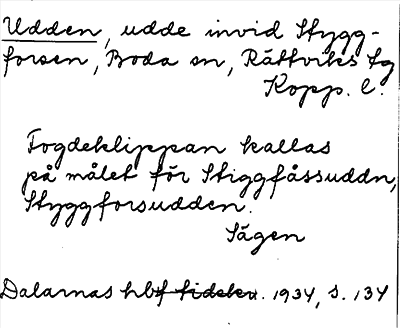 Udden, udde invid Stygg-
forsen, Boda sn, Rättviks tg
Kopp. l.
Fogdeklippan kallas
på målet för Stiggfåssuddn,
Styggforsudden.
Sägen
Dalarnas hbf tidskr. 1934, s. 134